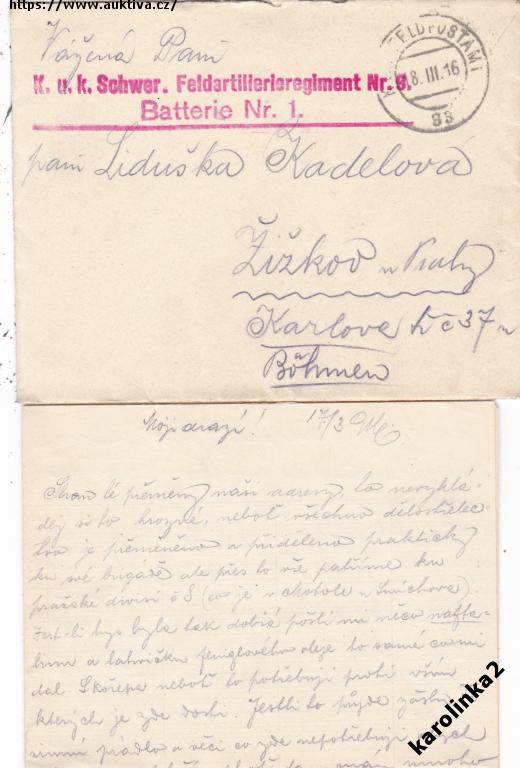 https://www.auktiva.cz/
Vážená Paní
K. u. k. Schwer. Feldartillerieregiment Nr. 9.
Batterie Nr. 1.
FELDPOSTAMT
18. III. 16
paní Liduška Kadelová
Žižkov u Prahy
Karlova č 37
Böhmen
Moji drazí! 17/3
té přeměny naší adresy, to nevyklá-
dej si to hrozně, neboť všechno dělostřelec-
tvo je přeměněno a přiděleno praktick
ku své brigádě ale přes to vše patříme ku
pražské divisi č 8 (co je v
Jest-li bys byla tak dobrá pošli mi něco nafta-
linu a lahvičku oleje to samé co mi
dal neboť to potřebuji proti vším
kterých je zde dosti. Jestli to půjde zašlu
zimní prádlo a věci co zde nepotřebuji
mám mnoho
karolinka2